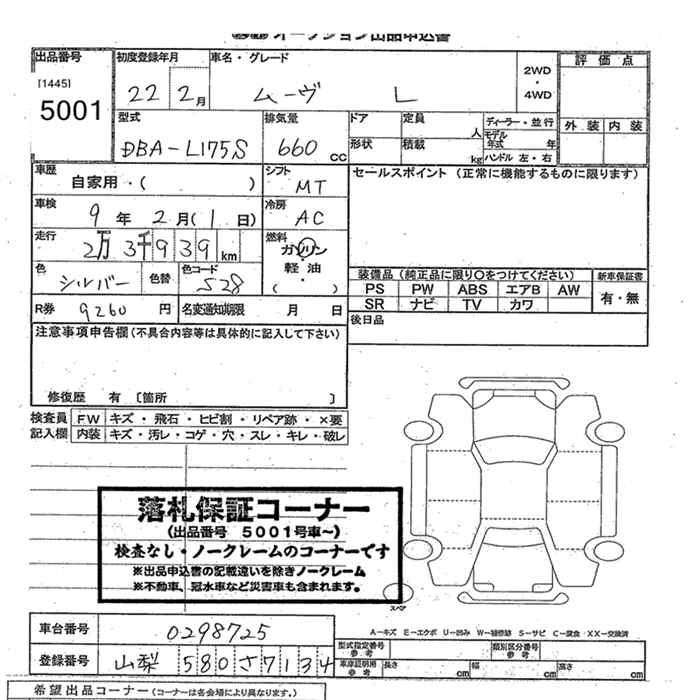 オークション出品申込書
出品番号 [1445] 5001
初度登録年月 22 2月
車名・グレード ムーヴ L
2WD・4WD
評価点
型式 DBA-L175S
排気量 660 cc
ドア 定員 人
ディーラー・並行
モデル年式 年
外装 内装
形状 積載 kg
ハンドル 左・右
車歴 自家用・( )
シフト MT
セールスポイント (正常に機能するものに限ります)
車検 9年 2月(1日)
冷房 AC
走行 2万3千939km
燃料 ガソリン・軽油・( )
色 シルバー 色替 色コード S28
装備品(純正品に限り○をつけてください) 新車保証書
PS PW ABS エアB AW 有・無
SR ナビ TV カワ
R券 9260円 名変通知期限 月 日
後日品
注意事項申告欄(不具合内容等は具体的に記入して下さい)
修復歴 有 〔箇所 〕
検査員 FW キズ・飛石・ヒビ割・リペア跡・×要
記入欄 内装 キズ・汚レ・コゲ・穴・スレ・キレ・破レ
落札保証コーナー
(出品番号 5001号車~)
検査なし・ノークレームのコーナーです
※出品申込書の記載違いを除きノークレーム
※不動車、冠水車など災害車も含まれます。
スペア
車台番号 0298725
A-キズ E-エクボ U-凹み W-補修跡 S-サビ C-腐食 XX-交換済
型式指定番号 参考 類別区分番号 参考
登録番号 山梨 580 さ 7134
車庫証明用 参考 長さ cm 幅 cm 高さ cm
希望出品コーナー (コーナーは各会場により異なります。)